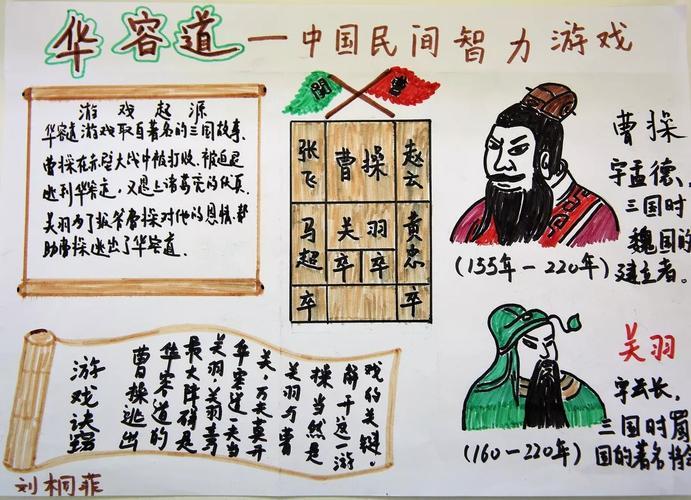 华容道—中国民间智力游戏
游戏起源
华容道游戏取自著名的三国故事,
曹操在赤壁大战中被打败,被迫退
逃到华容道,又遇上诸葛亮的伏兵,
关羽为了报答曹操对他的恩情,帮
助曹操逃出了华容道.
關
曹
张飞
曹操
赵云
马超
关羽
黄忠
卒
卒
卒
卒
曹操
字孟德、
三国时
魏国的
建立者。
(155年—220年)
关羽
字云长,
三国时蜀
国的著名将
(160—220年)
游戏诀窍
曹操逃出
华容道的
最大障碍是
关羽,关羽
华容道一夫当
关,万夫莫开
关羽与曹
操当然是
解开这一游
戏的关键。
刘桐菲